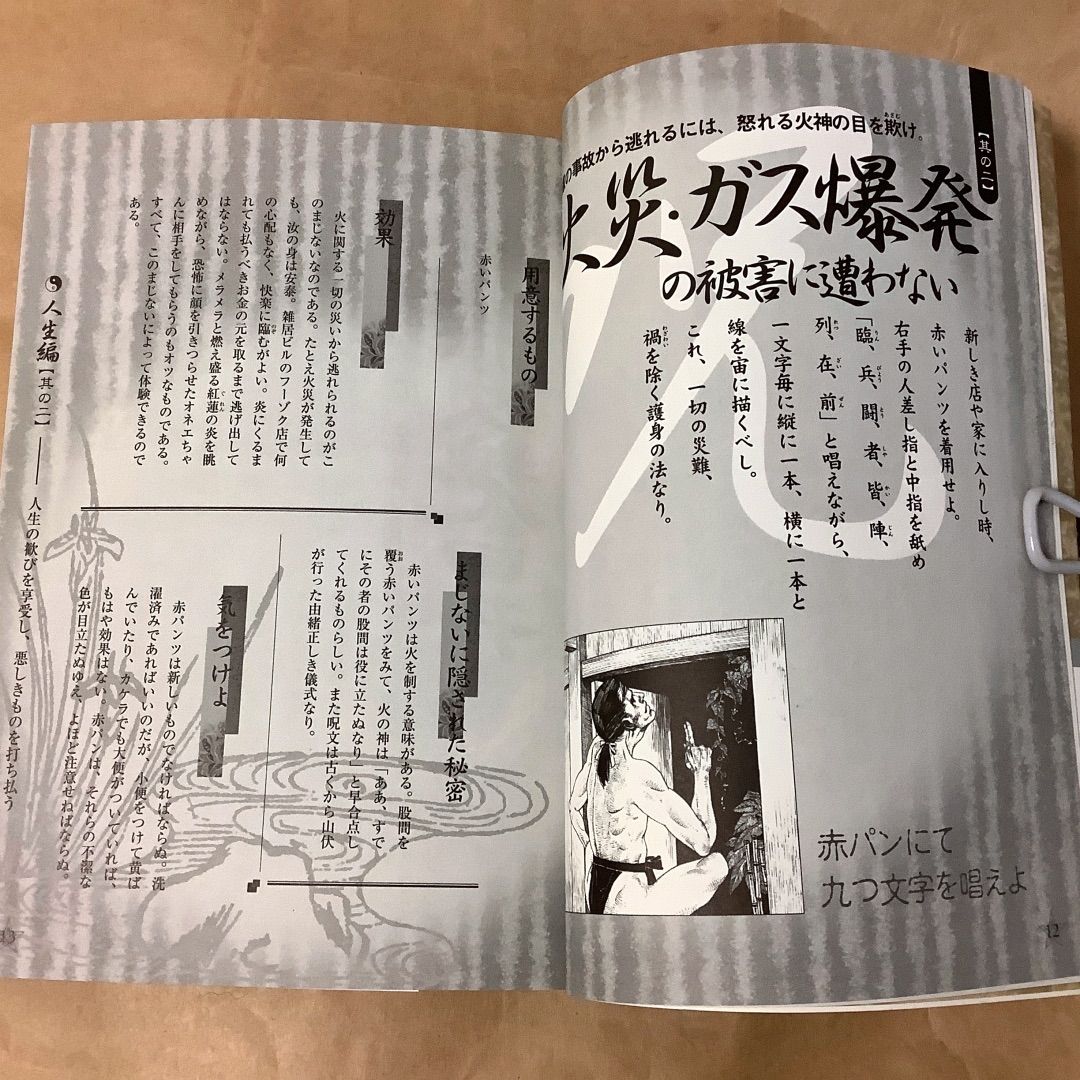 【其の二】
の事故から逃れるには、怒れる火神の目を欺け。
火災・ガス爆発
の被害に遭わない
新しき店や家に入りし時、
赤いパンツを着用せよ。
右手の人差し指と中指を舐め
「臨、兵、闘、者、皆、陣、
列、在、前」と唱えながら、
一文字毎に縦に一本、横に一本と
線を宙に描くべし。
これ、一切の災難、
禍を除く護身の法なり。
呪
赤パンにて
九つ文字を唱えよ
12
用意するもの
赤いパンツ
効果
火に関する一切の災いから逃れられるのがこ
のまじないなのである。たとえ火災が発生して
も、汝の身は安泰。雑居ビルのフーゾク店で何
の心配もなく、快楽に臨むがよい。炎にくるま
れても払うべきお金の元を取るまで逃げ出して
はならない。メラメラと燃え盛る紅蓮の炎を眺
めながら、恐怖に顔を引きつらせたオネエちゃ
んに相手をしてもらうのもオツなものである。
すべて、このまじないによって体験できるので
ある。
まじないに隠された秘密
赤いパンツは火を制する意味がある。股間を
覆う赤いパンツをみて、火の神は「ああ、すで
にその者の股間は役に立たぬなり」と早合点し
てくれるものらしい。また呪文は古くから山伏
が行った由緒正しき儀式なり。
気をつけよ
赤パンツは新しいものでなければならぬ。洗
濯済みであればいいのだが、小便をつけて黄ば
んでいたり、カケラでも大便がついていれば、
もはや効果はない。赤パンは、それらの不潔な
色が目立たぬゆえ、よほど注意せねばならぬ。
人生編【其の二】──人生の歓びを享受し、悪しきものを打ち払う
13